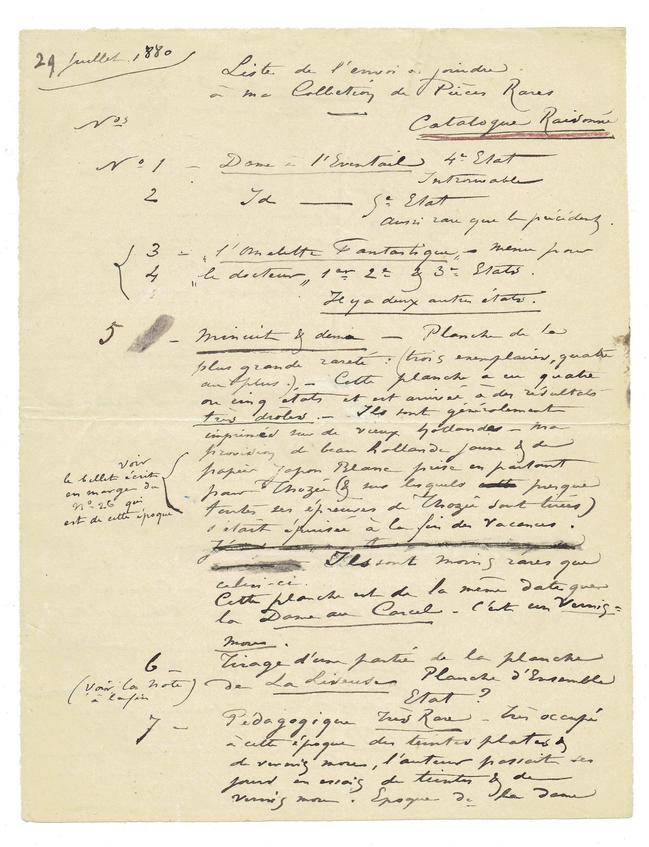 29 Juillet 1880
Liste de l'envoi à joindre
à ma Collection de Pièces Rares
Catalogue Raisonné
Nos
No 1 - Dame à l'Eventail 4e Etat
Introuvable
2 Id — 5e Etat
aussi rare que le précédent.
3 - "l'Omelette Fantastique" menu pour
4 "le docteur" 1er 2e & 3e Etats.
Il y a deux autres états.
5 - Minuit & demie - Planche de la
plus grande rareté : (trois exemplaires, quatre
au plus.) - Cette planche a eu quatre
ou cinq états et est arrivée à des résultats
très drôles. - Ils sont généralement
imprimés sur de vieux hollandes - ma
provision de beau hollande jaune & de
papier Japon Blanc prise en partant
pour Thozée (& sur lesquels presque
toutes les épreuves de Thozée sont tirées)
s'était épuisée à la fin des vacances.
Voir
le billet écrit
en marge du
No 26 qui
est de cette époque
Ils sont moins rares que
celui-ci.
Cette planche est de la même date que
la Dame au Carcel - C'est un Vernis-
mou.
6 - Tirage d'une partie de la planche
(Voir la Note à la fin) de La Liseuse Planche d'Ensemble
Etat ?
7 - Pédagogique Très Rare - très occupé
à cette époque des teintes plates &
de vernis mous, l'auteur passait ses
jours en essais de teintes & de
vernis mou. Epoque de la dame